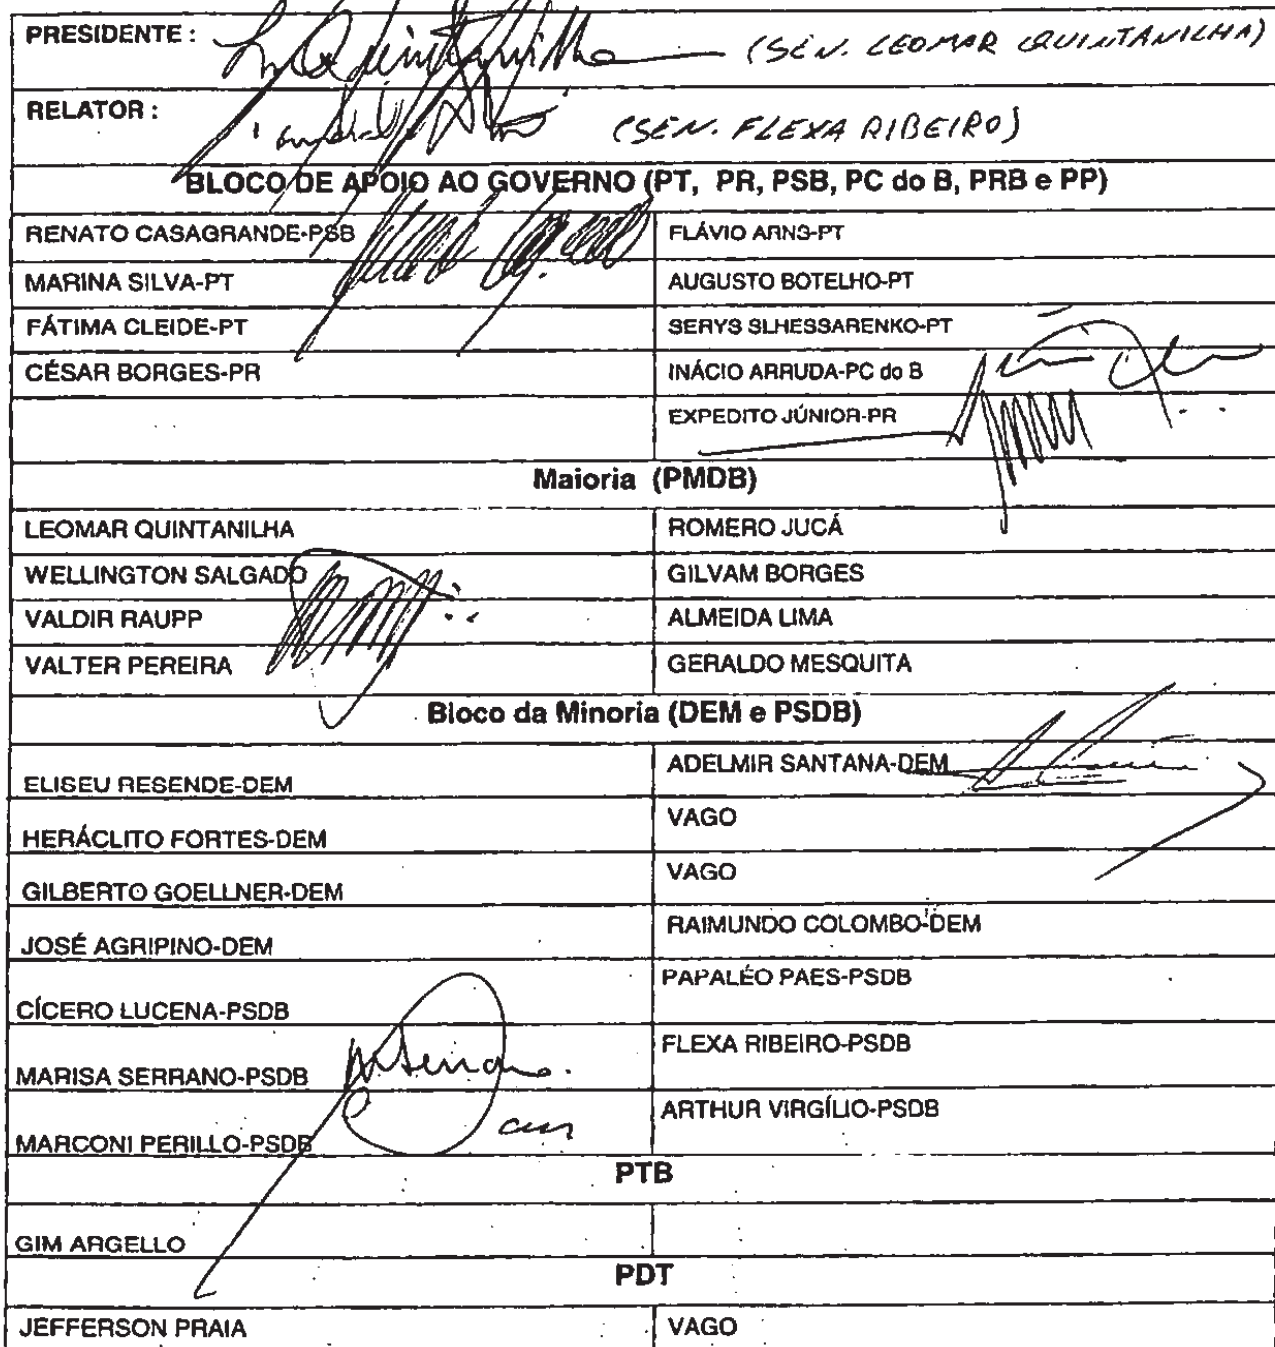 PRESIDENTE : (SEN. LEOMAR QUINTANILHA)
RELATOR : (SEN. FLEXA RIBEIRO)
BLOCO DE APOIO AO GOVERNO (PT, PR, PSB, PC do B, PRB e PP)
RENATO CASAGRANDE-PSB FLÁVIO ARNS-PT
MARINA SILVA-PT AUGUSTO BOTELHO-PT
FÁTIMA CLEIDE-PT SERYS SLHESSARENKO-PT
CÉSAR BORGES-PR INÁCIO ARRUDA-PC do B
EXPEDITO JÚNIOR-PR
Maioria (PMDB)
LEOMAR QUINTANILHA ROMERO JUCÁ
WELLINGTON SALGADO GILVAM BORGES
VALDIR RAUPP ALMEIDA LIMA
VALTER PEREIRA GERALDO MESQUITA
Bloco da Minoria (DEM e PSDB)
ELISEU RESENDE-DEM ADELMIR SANTANA-DEM
HERÁCLITO FORTES-DEM VAGO
GILBERTO GOELLNER-DEM VAGO
JOSÉ AGRIPINO-DEM RAIMUNDO COLOMBO-DEM
CÍCERO LUCENA-PSDB PAPALÉO PAES-PSDB
MARISA SERRANO-PSDB FLEXA RIBEIRO-PSDB
MARCONI PERILLO-PSDB ARTHUR VIRGÍLIO-PSDB
PTB
GIM ARGELLO
PDT
JEFFERSON PRAIA VAGO